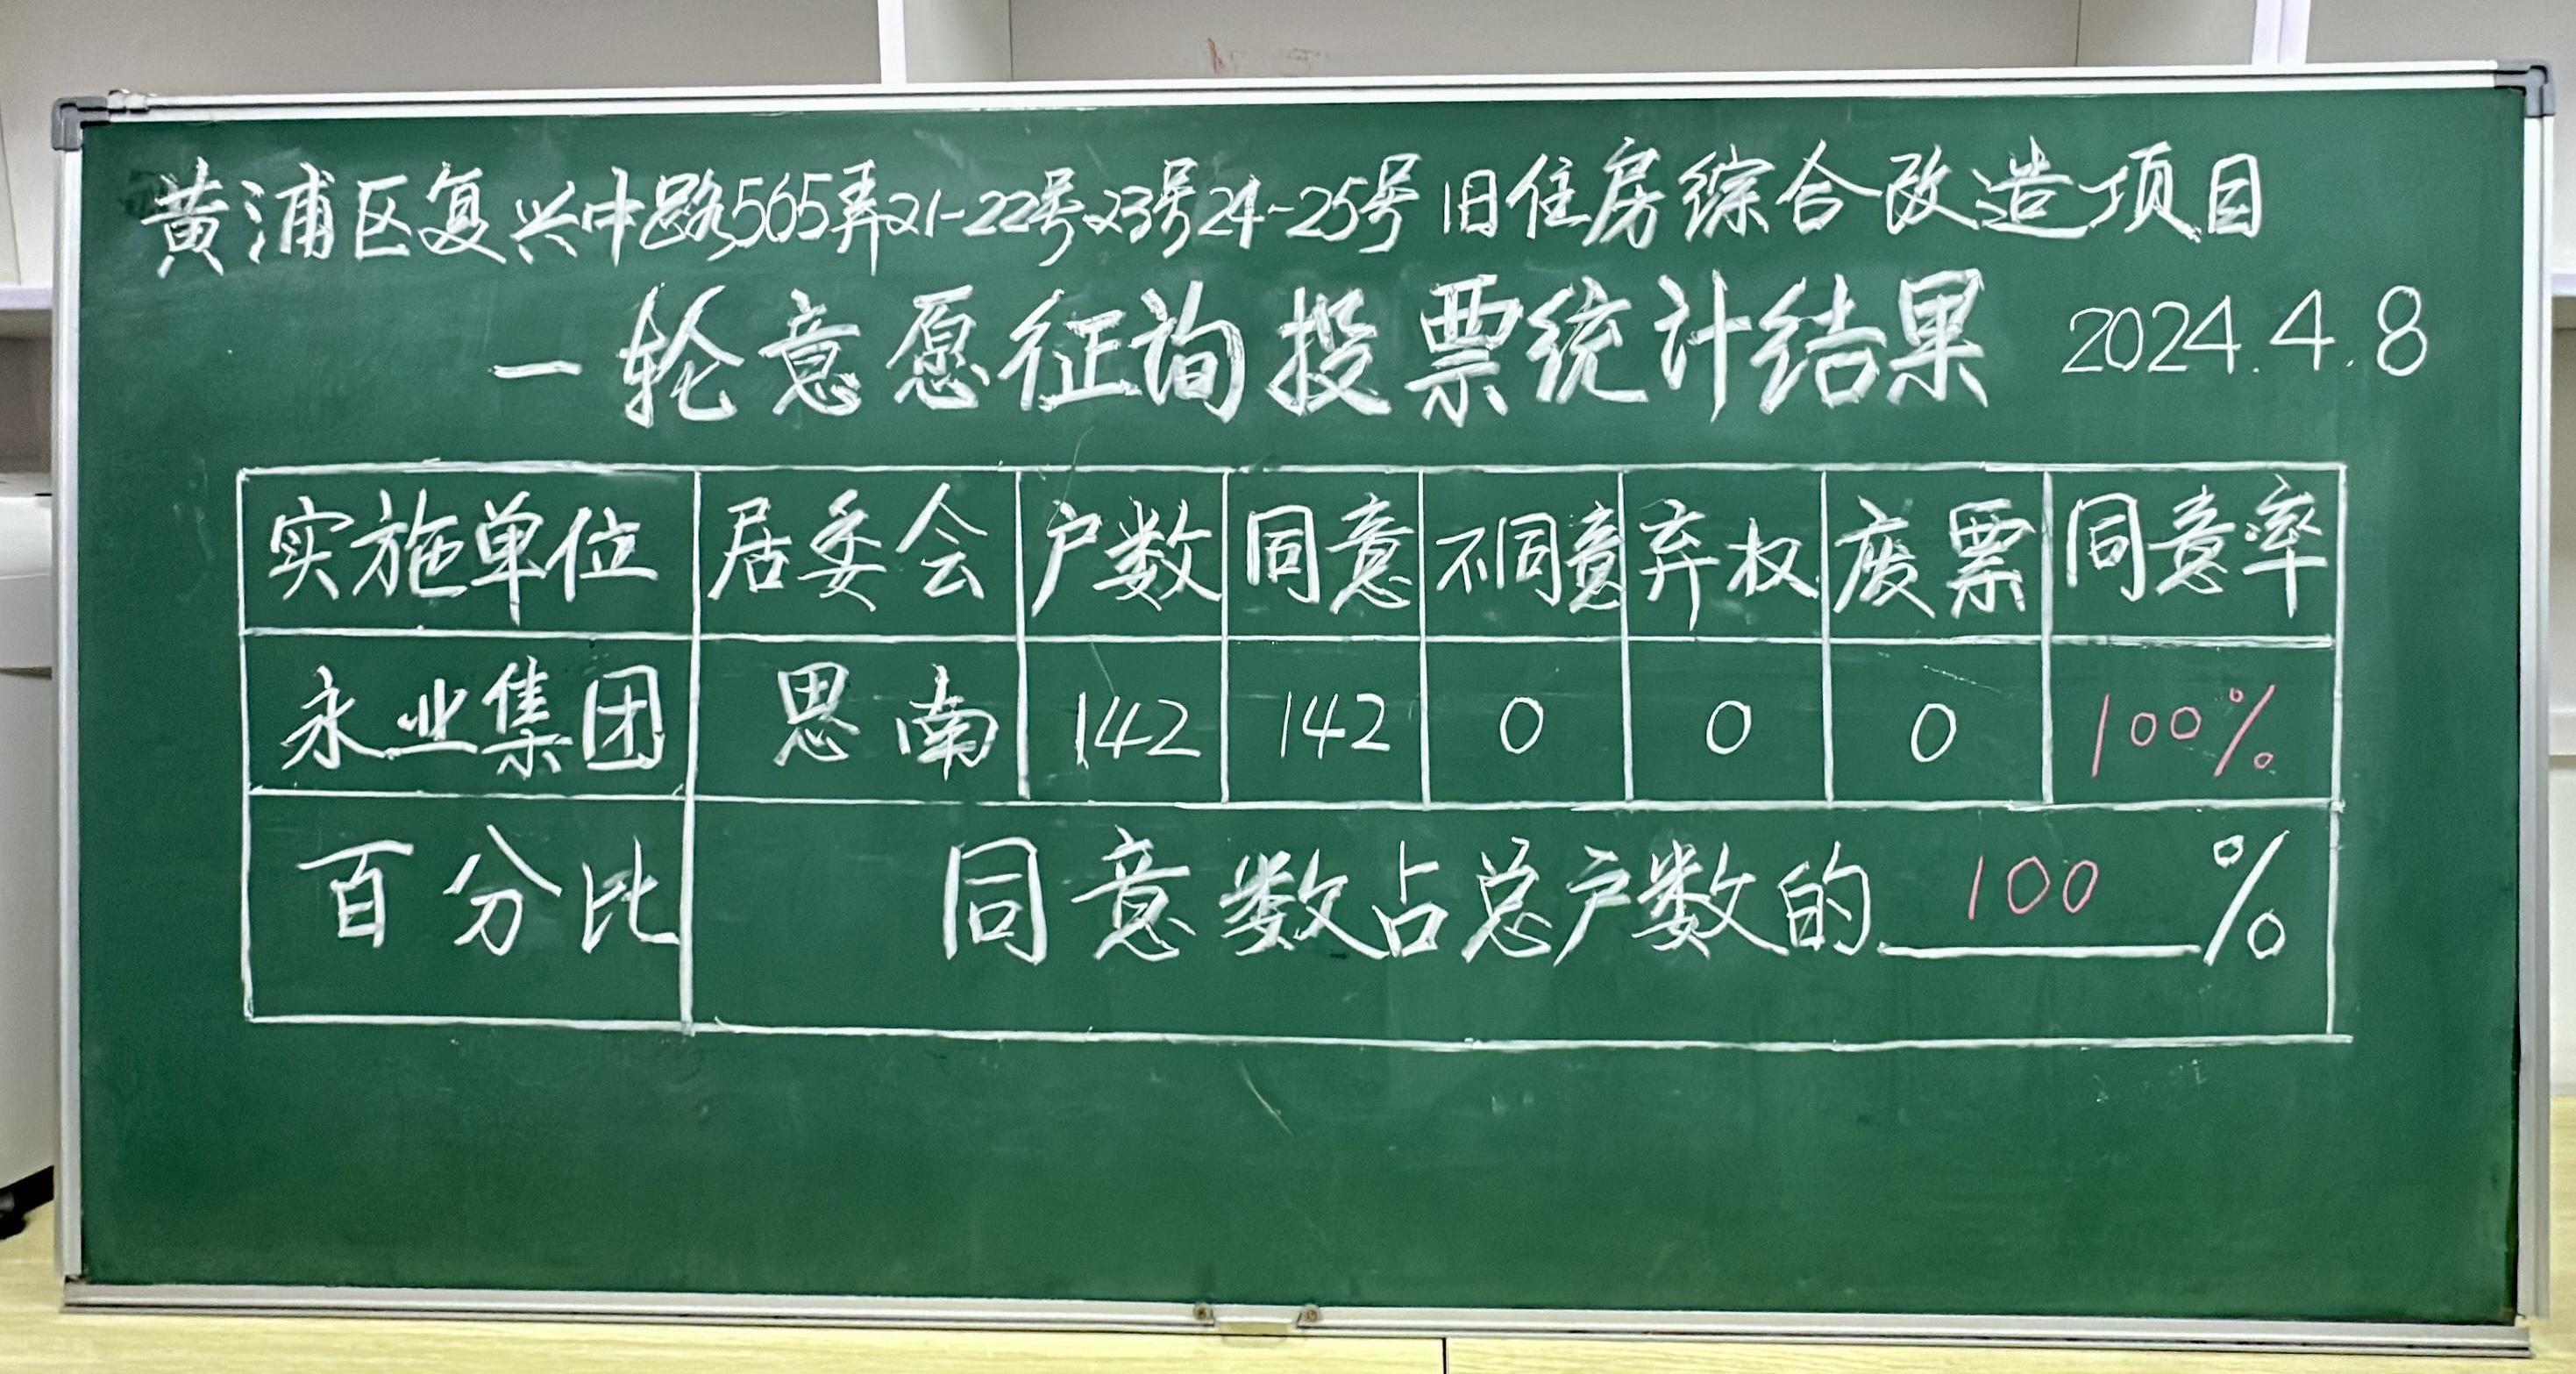 黄浦区复兴中路565弄21-22号23号24-25号旧住房综合改造项目
一轮意愿征询投票统计结果 2024.4.8
实施单位 居委会 户数 同意 不同意 弃权 废票 同意率
永业集团 思南 142 142 0 0 0 100%
百分比 同意数占总户数的 100 %